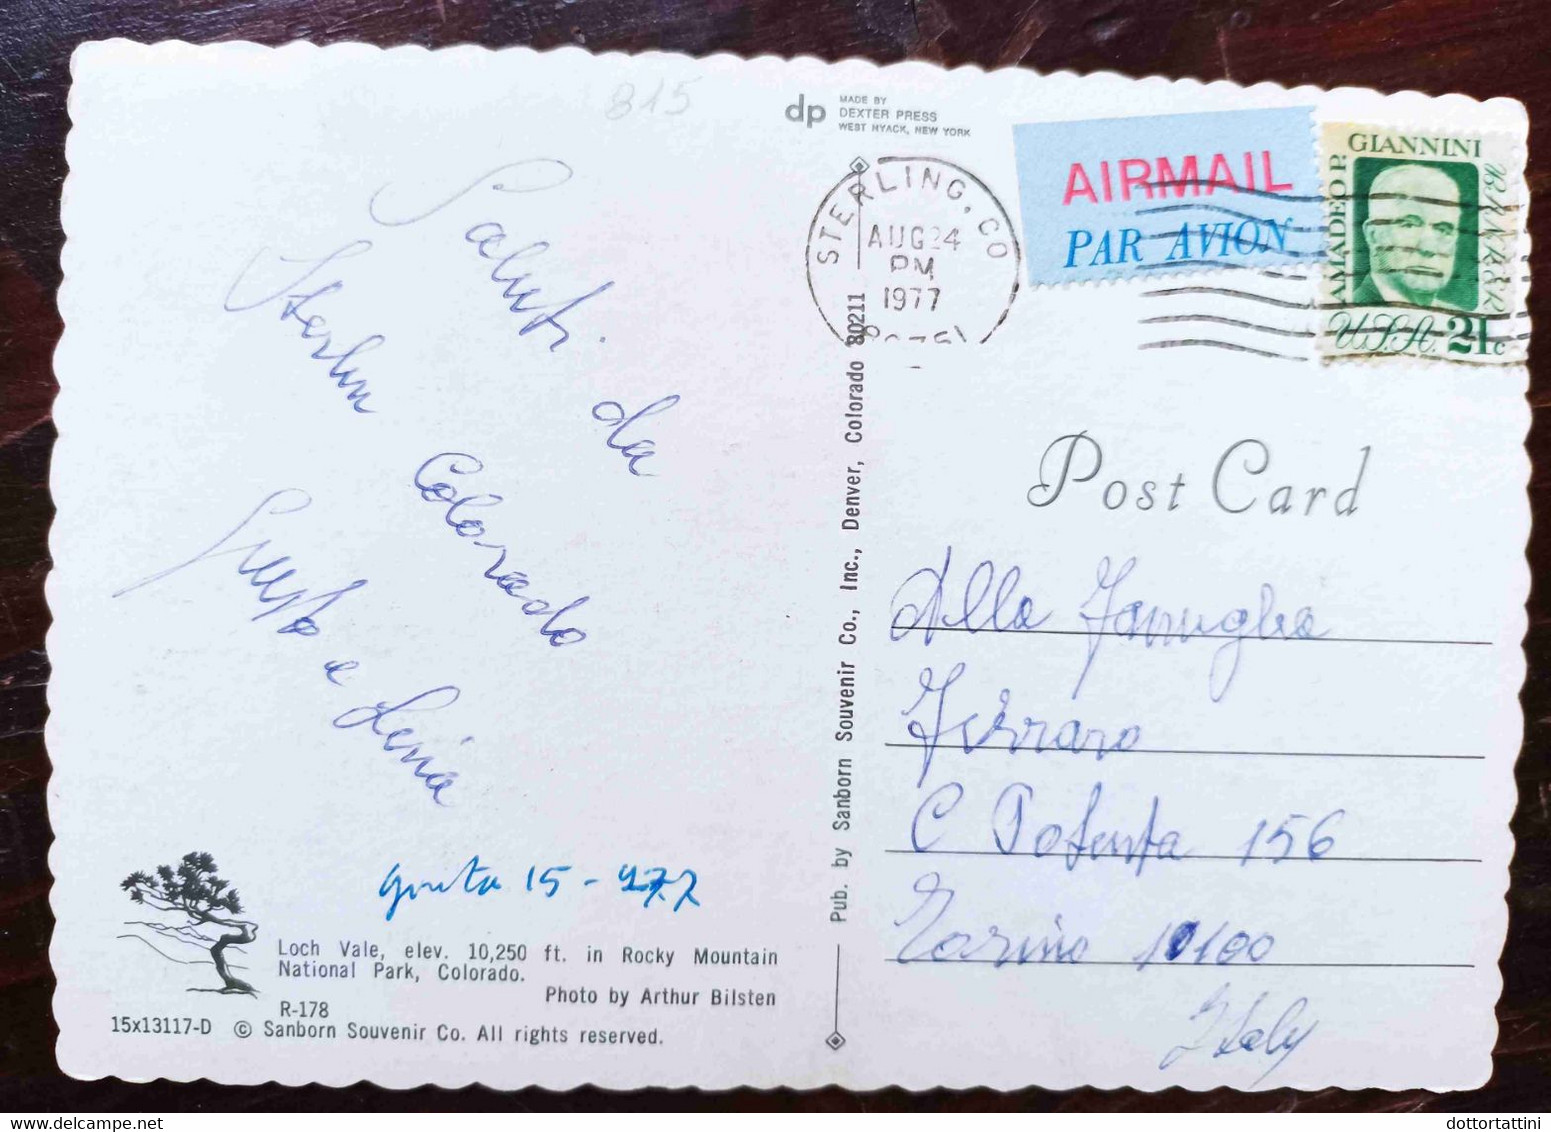 815
dp MADE BY
DEXTER PRESS
WEST NYACK, NEW YORK
STERLING, CO
AUG 24
PM
1977
AIRMAIL
PAR AVION
AMADEO P. GIANNINI BANKER
U.S.A. 21c
Saluti da
Sterlin Colorado
e
Post Card
Alla Famiglia
Ferraro
C Potenza 156
Torino 10100
Italy
15-
Pub. by Sanborn Souvenir Co., Inc., Denver, Colorado 80211
Loch Vale, elev. 10,250 ft. in Rocky Mountain
National Park, Colorado.
Photo by Arthur Bilsten
R-178
15x13117-D © Sanborn Souvenir Co. All rights reserved.
dottortattini